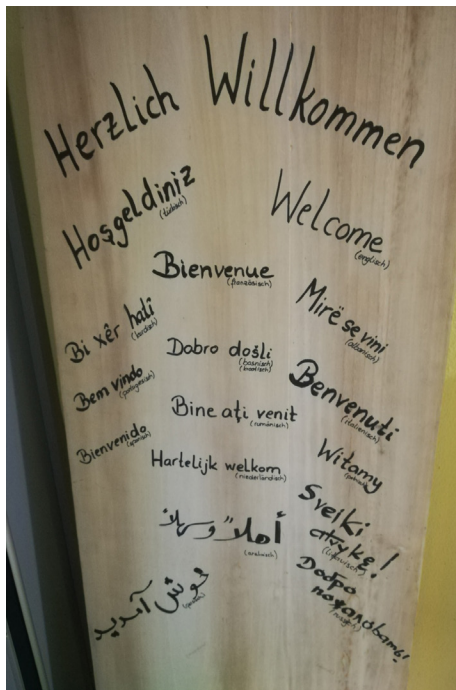 Herzlich Willkommen
Hoşgeldiniz
(türkisch)
Welcome
(englisch)
Bienvenue
(französisch)
Mirë se vini
(albanisch)
Bi xêr hatî
(kurdisch)
Dobro došli
(bosnisch)
(kroatisch)
Bem vindo
(portugiesisch)
Benvenuti
(italienisch)
Bine aţi venit
(rumänisch)
Bienvenido
(spanisch)
Witamy
(polnisch)
Hartelijk welkom
(niederländisch)
Sveiki
atvykę!
(litauisch)
أهلاً وسهلاً
(arabisch)
Добро
пожаловать!
(russisch)
خوش آمدید